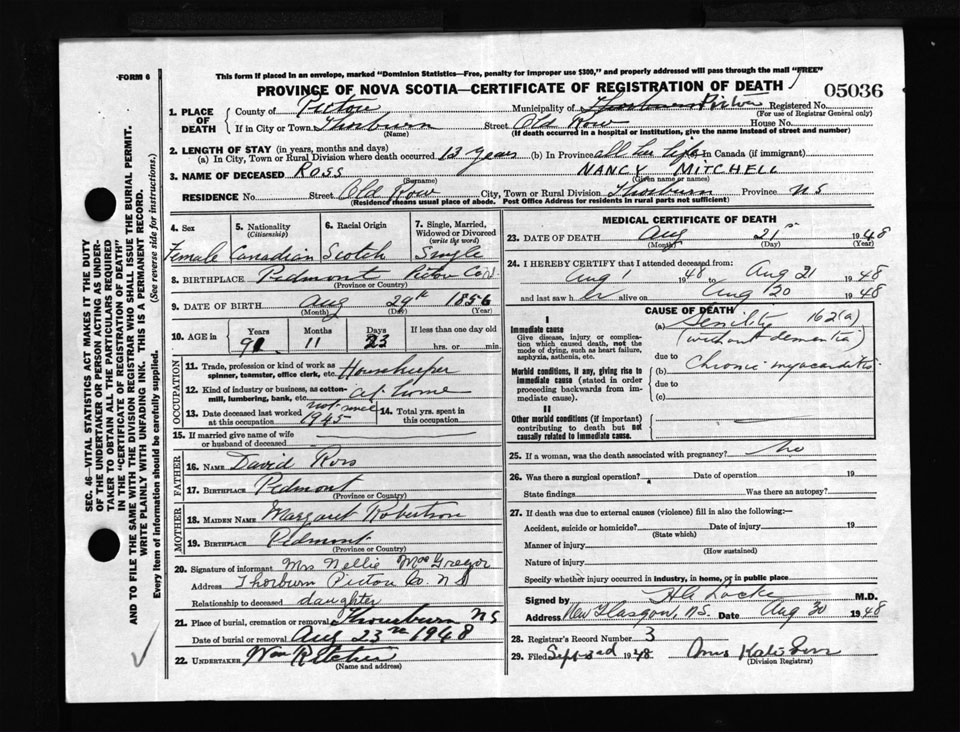 FORM 6
This form if placed in an envelope, marked "Dominion Statistics—Free, penalty for improper use $300," and properly addressed will pass through the mail "FREE"
PROVINCE OF NOVA SCOTIA—CERTIFICATE OF REGISTRATION OF DEATH
05036
1. PLACE OF DEATH
County of Pictou Municipality of Pictou Registered No.
(For use of Registrar General only)
If in City or Town Thorburn Street Old Row House No.
(Name) (If death occurred in a hospital or institution, give the name instead of street and number)
2. LENGTH OF STAY (in years, months and days)
(a) In City, Town or Rural Division where death occurred 13 years (b) In Province all her life (c) In Canada (if immigrant)
3. NAME OF DECEASED ROSS NANCY MITCHELL
(Surname) (Given name or names)
RESIDENCE No. Street Old Row City, Town or Rural Division Thorburn Province N S
(Residence means usual place of abode. Post Office Address for residents in rural parts not sufficient)
4. Sex 5. Nationality (Citizenship) 6. Racial Origin 7. Single, Married, Widowed or Divorced (write the word)
Female Canadian Scotch Single
8. BIRTHPLACE Piedmont Pictou Co
(Province or Country)
9. DATE OF BIRTH Aug 29th 1856
(Month) (Day) (Year)
10. AGE in Years Months Days If less than one day old
91 11 23 hrs. or min.
OCCUPATION
11. Trade, profession or kind of work as spinner, teamster, office clerk, etc. Housekeeper
12. Kind of industry or business, as cotton-mill, lumbering, bank, etc. at home
13. Date deceased last worked at this occupation not since 1945 14. Total yrs. spent in this occupation
15. If married give name of wife or husband of deceased
FATHER
16. NAME David Ross
17. BIRTHPLACE Piedmont
(Province or Country)
MOTHER
18. MAIDEN NAME Margaret Robertson
19. BIRTHPLACE Piedmont
(Province or Country)
20. Signature of informant Mrs Nellie MacGregor
Address Thorburn Pictou Co. N S
Relationship to deceased daughter
21. Place of burial, cremation or removal Thorburn N S
Date of burial or removal Aug 23rd 1948
22. UNDERTAKER Wm Ritchie
(Name and address)
MEDICAL CERTIFICATE OF DEATH
23. DATE OF DEATH Aug 21st 1948
(Month) (Day) (Year)
24. I HEREBY CERTIFY that I attended deceased from:
Aug 1 1948 to Aug 21 1948
and last saw her alive on Aug 20 1948
CAUSE OF DEATH
I
Immediate cause
Give disease, injury or complication which caused death, not the mode of dying, such as heart failure, asphyxia, asthenia, etc.
(a) Senility 162(a)
(without dementia)
due to
Morbid conditions, if any, giving rise to immediate cause (stated in order proceeding backwards from immediate cause).
(b) Chronic myocarditis
due to
(c)
II
Other morbid conditions (if important) contributing to death but not causally related to immediate cause.
25. If a woman, was the death associated with pregnancy? no
26. Was there a surgical operation? Date of operation 19
State findings Was there an autopsy?
27. If death was due to external causes (violence) fill in also the following:—
Accident, suicide or homicide? Date of injury 19
(State which)
Manner of injury
(How sustained)
Nature of injury
Specify whether injury occurred in industry, in home, or in public place
Signed by H A Locke M.D.
Address New Glasgow, N.S. Date Aug 30 1948
28. Registrar's Record Number 3
29. Filed Sept 1948
(Division Registrar)
SEC. 46—VITAL STATISTICS ACT MAKES IT THE DUTY
OF THE UNDERTAKER OR PERSON ACTING AS UNDER-
TAKER TO OBTAIN ALL THE PARTICULARS REQUIRED
IN THE "CERTIFICATE OF REGISTRATION OF DEATH"
AND TO FILE THE SAME WITH THE DIVISION REGISTRAR WHO SHALL ISSUE THE BURIAL PERMIT.
WRITE PLAINLY WITH UNFADING INK. THIS IS A PERMANENT RECORD.
Every item of information should be carefully supplied. (See reverse side for instructions.)